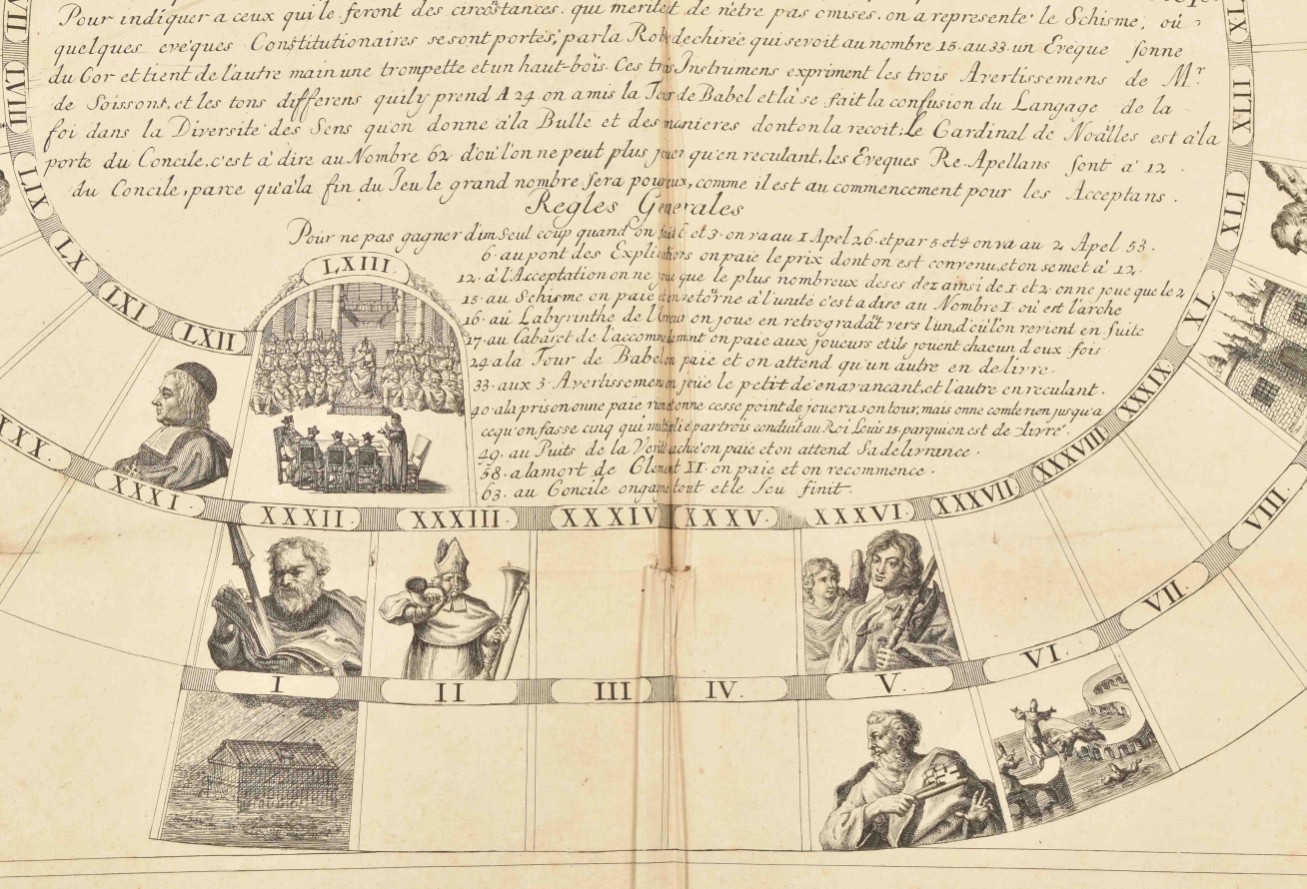 Pour indiquer a ceux qui le feront des circõstances. qui meritẽt de nêtre pas omises. on a represente le Schisme, où
quelques evêques Constitutionaires se sont portés, par la Robe dechirée qui se voit au nombre 15. au 33. un Evêque sonne
du Cor et tient de l'autre main une trompette et un haut-bois. Ces trois Instrumens expriment les trois Avertissemens de Mr.
de Soissons, et les tons differens quily prend A 24 on a mis la Tour de Babel et là se fait la confusion du Langage de la
foi dans la Diversité des Sens qu'on donne à la Bulle et des manieres dont on la recoit, le Cardinal de Noälles est à la
porte du Concile, c'est à dire au Nombre 62 d'où l'on ne peut plus jouer qu'en reculant, les Eveques Re-Apellans sont à 12
du Concile, parce qu'à la fin du Jeu le grand nombre sera pour eux, comme il est au commencement pour les Acceptans.
Regles Generales
Pour ne pas gagner d'un Seul coup quand on fait 6 et 3. on va au 1 Apel 26. et par 5 et 4 on va au 2 Apel 53.
6. au pont des Explications on paie le prix dont on est convenu, et on se met à 12.
12. à l'Acceptation on ne joue que le plus nombreux de ses dez ainsi de 1 et 2. on ne joue que le 2
15. au Schisme on paie et on retörne à l'unité c'est a dire au Nombre I. où est l'arche
16. au Labyrinthe de l'Erreur on joue en retrogradãt vers l'un, d'où l'on revient en suite
17. au Cabaret de l'accommodement on paie aux joueurs et ils jouent chacun deux fois
24 a la Tour de Babel on paie et on attend qu'un autre en delivre.
33. aux 3. Avertissemens on joüe le petit dé en avancant, et l'autre en reculant.
40. a la prison on ne paie rien et on ne cesse point de jouer a son tour, mais on ne comte rien jusqu'a
ce qu'on fasse cinq qui multiplié par trois conduit au Roi Louis 15. par qui on est de livré.
49. au Puits de la Verité cachée on paie et on attend Sa delivrance.
58. a la mort de Clement XI. on paie et on recommence.
63. au Concile on gagne tout et le Jeu finit.
LVII
LVIII
LIX
LX
LXI
LXII
LXIII.
XLIII
XLII
XLI
XL
XXXIX
XXXVIII
XXXVII
XXXVI
XXXV.
XXXIV
XXXIII.
XXXII.
XXXI.
XXX
I
II
III
IV.
V.
VI.
VII.
VIII.